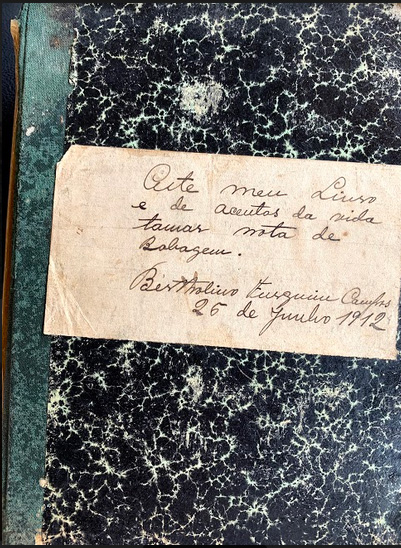 Este meu Livro
e de acentos da vida
tamar nota de
Bobagem.
Bertholino Turguim Campos
25 de Junho 1912